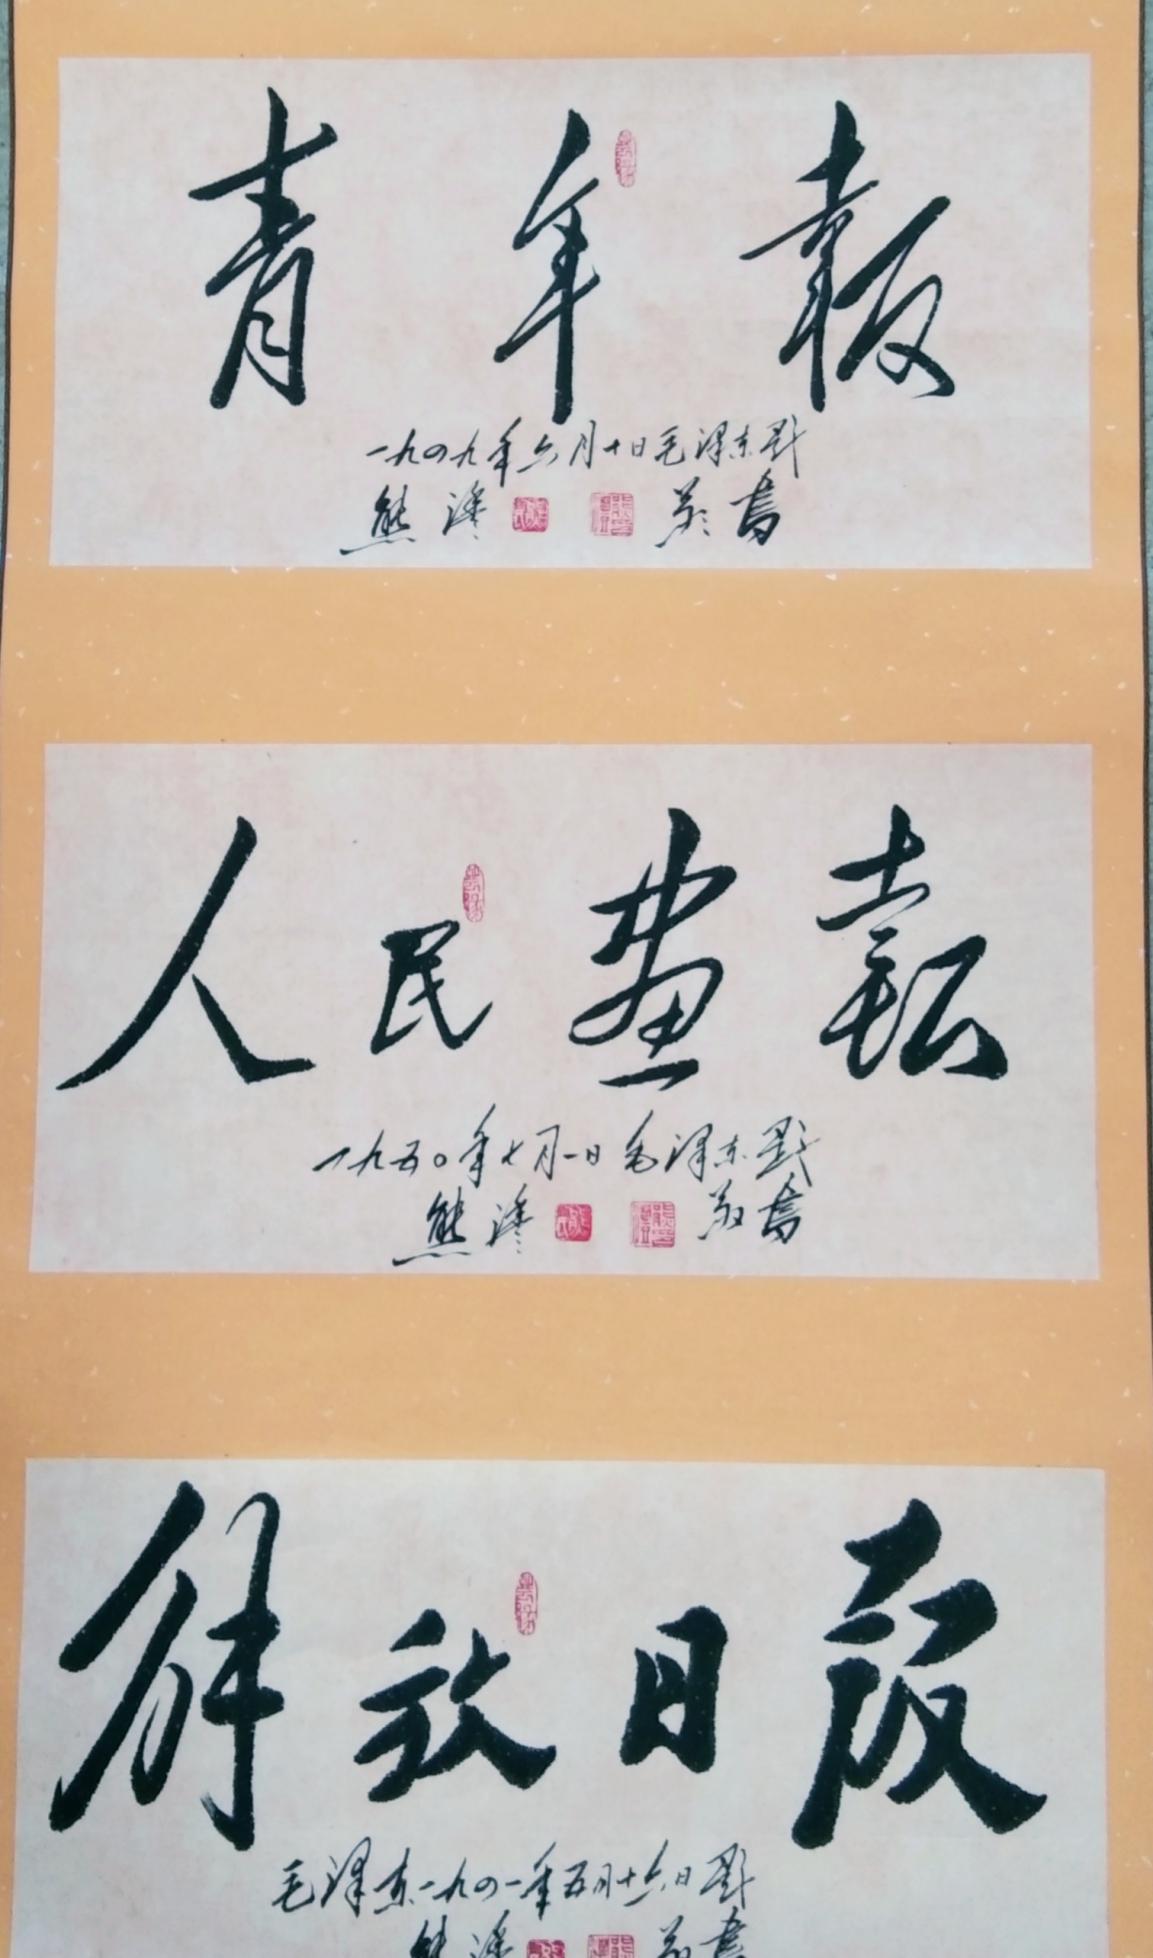 青年報
一九四九年六月十日毛泽东题
熊泽 敬书
人民画報
一九五〇年七月一日毛泽东题
熊泽 敬书
解放日報
毛泽东一九四一年五月十六日题
熊泽 敬书